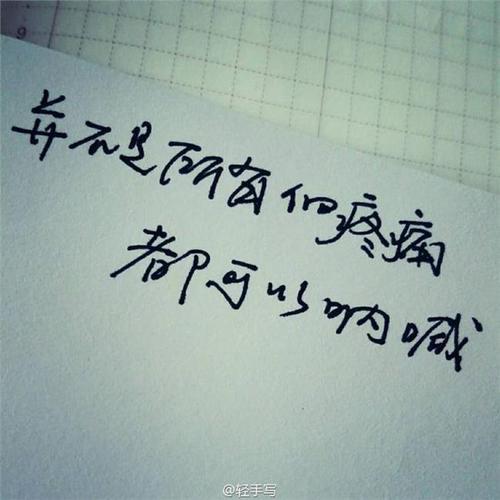 9
并不是所有的疼痛
都可以呐喊
@轻手写